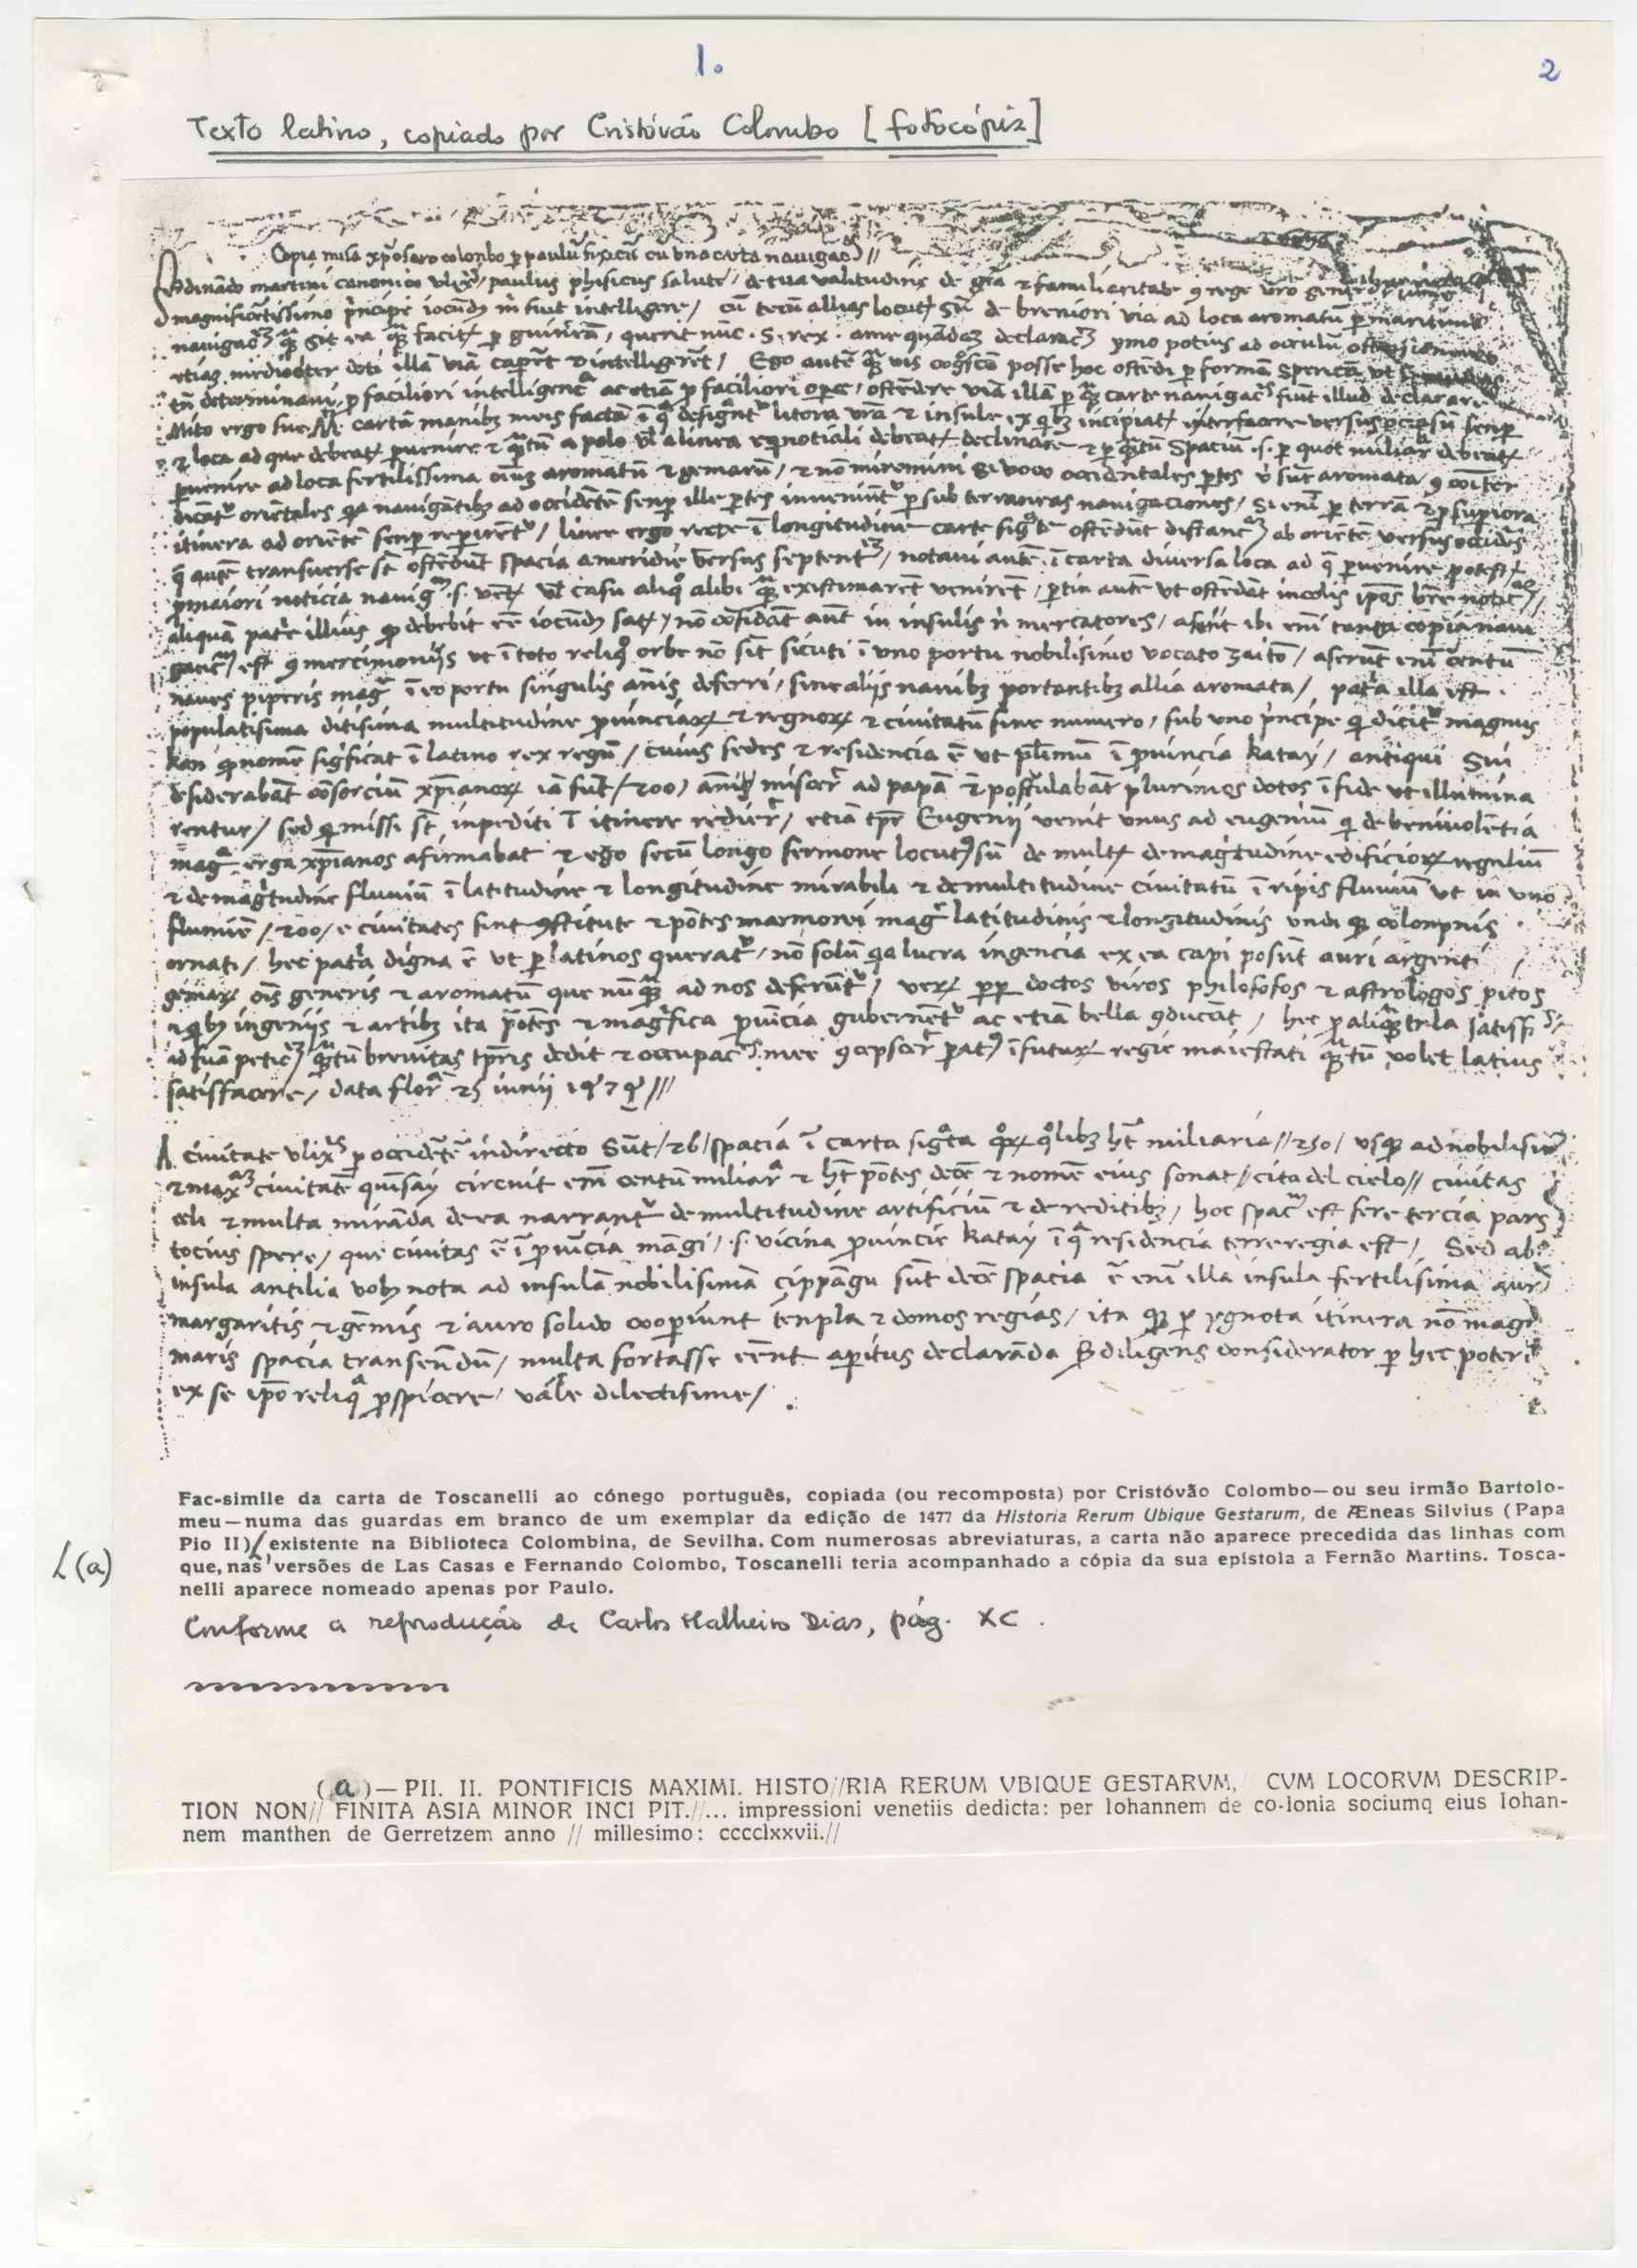 1.
2
Texto latino, copiado por Cristóvão Colombo [fotocópia]
Copia misa xp̄ofaro colonbo p paulū fixicū cū una carta navigacōis //
Ferdinādo martini canonico ulixiponēsi / paulus phisicus salutē / de tua valitudine de grā & familiaritate 9 rege vr̄o generosissimo
magnificētissimo principe iocūdū m̄ fuit intelligere / cū tecū allias locutus sū de breviori via ad loca aromatū p maritimā
navigacōēm quā sit ea quā facitis p guineam, querit nūc .S. rex. a me quādam declaracōem ymo potius ad occulū ostensionem
etiam mediocriter doti illā viā caperēt & intelligerēt / Ego autē quāvis cognoscā posse hoc ostēdi p formā spericā ut
tn̄ determinavi p faciliori intelligencia ac etiā p faciliori opera / ostēdere viā illā p quā carte navigacōis fiūt illud declarare
Mito ergo sue Mti cartā manibz meis factā ī qua designantur litora vrā & insule ex qbz incipiatis iter facere versus occasū senper
& loca ad que debeatis pvenire & quātū a polo vl̄ a linea equinotiali debeatis declinare & p quātū spaciū .s. p quot miliaria debeatis
pvenire ad loca fertilissima oīuz aromatū & gemarū / & nō miremini si voco occidentales ptes ubi sūt aromata 9 coīter
dicātur orietales qa navigātibz ad occidētē senp ille ptes inveniūtur p subterraneas navigaciones / Si enī p terrā & p supiora
itinera ad oriētē senp repirentur / linee ergo recte ī longitudine carte signate ostēdūt distanciam ab oriētē versus occidēs
q̄ autē transverse st̄ ostēdūt spacia a meridie versus septentrionem / notavi autē ī carta diversa loca ad q̄ pvenire potestis
p maiori noticia navigātium .s. vētis vl̄ casu aliquo alibi quā existimarēt venirēt / partim autē ut ostēdāt incolis ipsos habere noticiam
aliquā patrie illius quod debebit eē iocūdū satis / nō cōsidāt aūt in insulis nisi mercatores / aserit ibi enī tanta copia navi
gancium est 9 mercimoniis ut ī toto reliquo orbe nō sīt sicuti ī uno portu nobilisimo vocato zaitō / aserūt enī centū
naves piperis magne ī eo portu singulis ānis deferri / sine aliis navibz portantibz allia aromata / patria illa est
populatisima ditisima multitudine pvinciarum & regnorum & civitatū sine numero / sub uno principe qui dicitur magnus
kan quod nomē significat ī latino rex regū / cuius sedes & residencia ē ut plīmū ī pvincia katay / antiqui sui
desiderabāt cōsorciū xp̄ianorum iā sūt / 200 / anni miscerunt ad papā & postulabāt plurimos dotos ī fide ut illumina
rentur / sed qui missi st̄ inpediti ī itinere redierunt / etiā tpr̄e Eugenii venit unus ad eugeniū qui de benivolētia
magna erga xp̄ianos afirmabat & ego secū longo sermone locutus sū de multis de magnitudine edificiorum regaliū
& de magnitudine fluviū ī latitudine & longitudine mirabili & de multitudine civitatū ī ripis fluviū ut in uno
flumīe / 200 / e civitates sint 9stitute & pōtes marmorei magne latitudinis & longitudinis undi que colonpnis
ornati / hec patria digna ē ut p latinos queratur / nō solū qa lucra ingencia ex ea capi posūt auri argenti
gemarum oīs generis & aromatū que nūquā ad nos deferūtur / verum ppter doctos viros philosofos & astrologos pitos
& qbz ingeniis & artibz ita potēs & magnifica pvīcia gubernētur ac etiā bella 9ducāt / hec p aliquātula satisf
ad suā peticionem quātū brevitas tp̄ris dedit & occupaciones mee 9cepscerunt paratus ī futurum regie maiestati quātū volet latius
satisfacere / data florencia 25 iunii 1474 ///
A civitate ulixiponis p occidētē in directo Sūt / 26 / spacia ī carta signata quorum quolibz h̄t miliaria // 250 / usqz ad nobilisim
& maxam civitatē quīsay circuit enī centū miliaria & h̄t pōtes decē & nomē eius sonat // cita del cielo // civitas
celi & multa mirāda de ea narrantur de multitudine artificiū & de reditibz / hoc spaciū est fere tercia pars
tocius spere / que civitas ē ī pvīcia māgi / .s. vicina pvincie katay ī qua residencia terre regia est / Sed ab
insula antilia vobis nota ad insulā nobilisimā cippāgu sūt decē spacia ē enī illa insula fertilisima auro
margaritis & gēmis & auro solido cooperiunt tenpla & domos regias / ita qz p ygnota itinera nō magna
maris spacia transeūdū / multa fortasse eēnt apitus declarāda sed diligens considerator p hec poterit
ex se ipso reliqua pspicere / vale dilectisime /
Fac-simile da carta de Toscanelli ao cónego português, copiada (ou recomposta) por Cristóvão Colombo—ou seu irmão Bartolo-
meu—numa das guardas em branco de um exemplar da edição de 1477 da Historia Rerum Ubique Gestarum, de Æneas Silvius (Papa
Pio II)/existente na Biblioteca Colombina, de Sevilha. Com numerosas abreviaturas, a carta não aparece precedida das linhas com
L (a)
que, nas versões de Las Casas e Fernando Colombo, Toscanelli teria acompanhado a cópia da sua epístola a Fernão Martins. Tosca-
nelli aparece nomeado apenas por Paulo.
Conforme a reprodução de Carlos Malheiro Dias, pág. XC.
(a)—PII. II. PONTIFICIS MAXIMI. HISTO//RIA RERUM VBIQUE GESTARVM, CVM LOCORVM DESCRIP-
TION NON// FINITA ASIA MINOR INCI PIT.//... impressioni venetiis dedicta: per Iohannem de co-lonia sociumq eius Iohan-
nem manthen de Gerretzem anno // millesimo: cccclxxvii.//